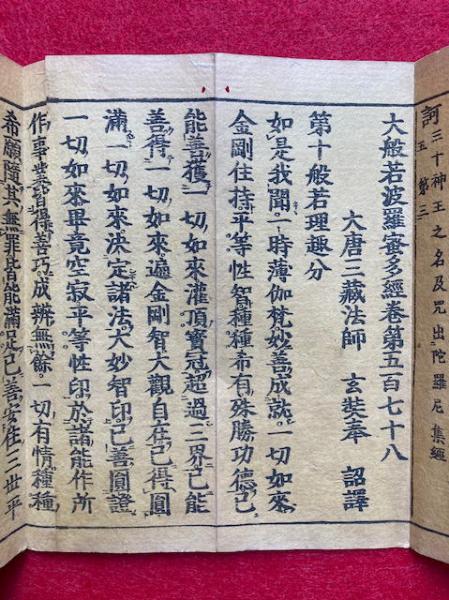 訶三十神王之名及咒出陀羅尼集經
五 第三
大般若波羅蜜多經卷第五百七十八
大唐三藏法師 玄奘奉 詔譯
第十般若理趣分
如是我聞一時薄伽梵妙善成就一切如來
金剛住持平等性智種種希有殊勝功德已
能善獲一切如來灌頂寶冠超過三界已能
善得一切如來遍金剛智大觀自在已得圓
滿一切如來決定諸法大妙智印已善圓證
一切如來畢竟空寂平等性印於諸能作所
作事業皆得善巧成辨無餘一切有情種種
希願隨其無罪皆能滿足已善安住三世平